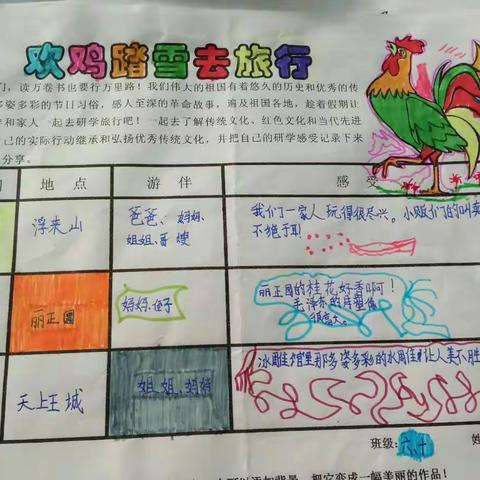 欢鸡踏雪去旅行
们，读万卷书也要行万里路！我们伟大的祖国有着悠久的历史和优秀的传
多姿多彩的节日习俗，感人至深的革命故事，遍及祖国各地，趁着假期让
和家人一起去研学旅行吧！一起去了解传统文化、红色文化和当代先进
己的实际行动继承和弘扬优秀传统文化，并把自己的研学感受记录下来
分享。
地 点 游 伴 感 受
浮来山 爸爸、妈妈、
姐姐、哥嫂
我们一家人玩得很尽兴。小贩们的叫卖
不绝于耳
丽正园 妈妈、侄子
丽正园的桂花好香啊！
毛泽东的房
很
天上王城 姐姐、妈妈
冰雕馆里那多姿多彩的冰雕让人美不胜
班级：六、十
把它变成一幅美丽的作品！